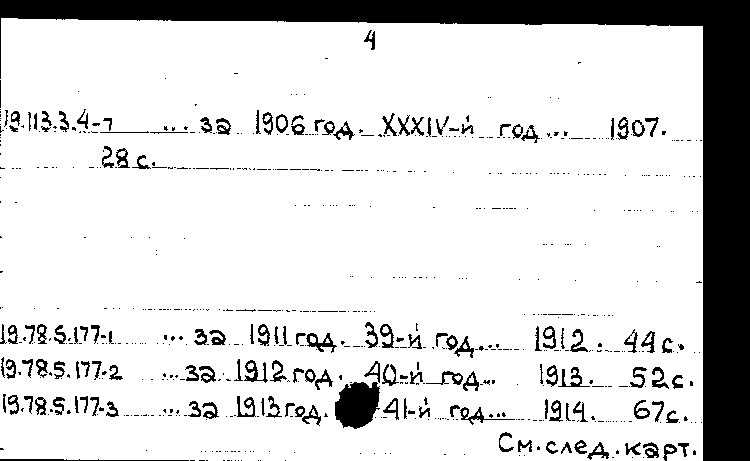 4
19.113.3.4-7 ... за 1906 год. XXXIV-й год... 1907.
28 с.
19.78.5.177-1 ... за 1911 год. 39-й год... 1912. 44 с.
19.78.5.177-2 ... за 1912 год. 40-й год... 1913. 52 с.
19.78.5.177-3 ... за 1913 год. 41-й год... 1914. 67 с.
См. след. карт.